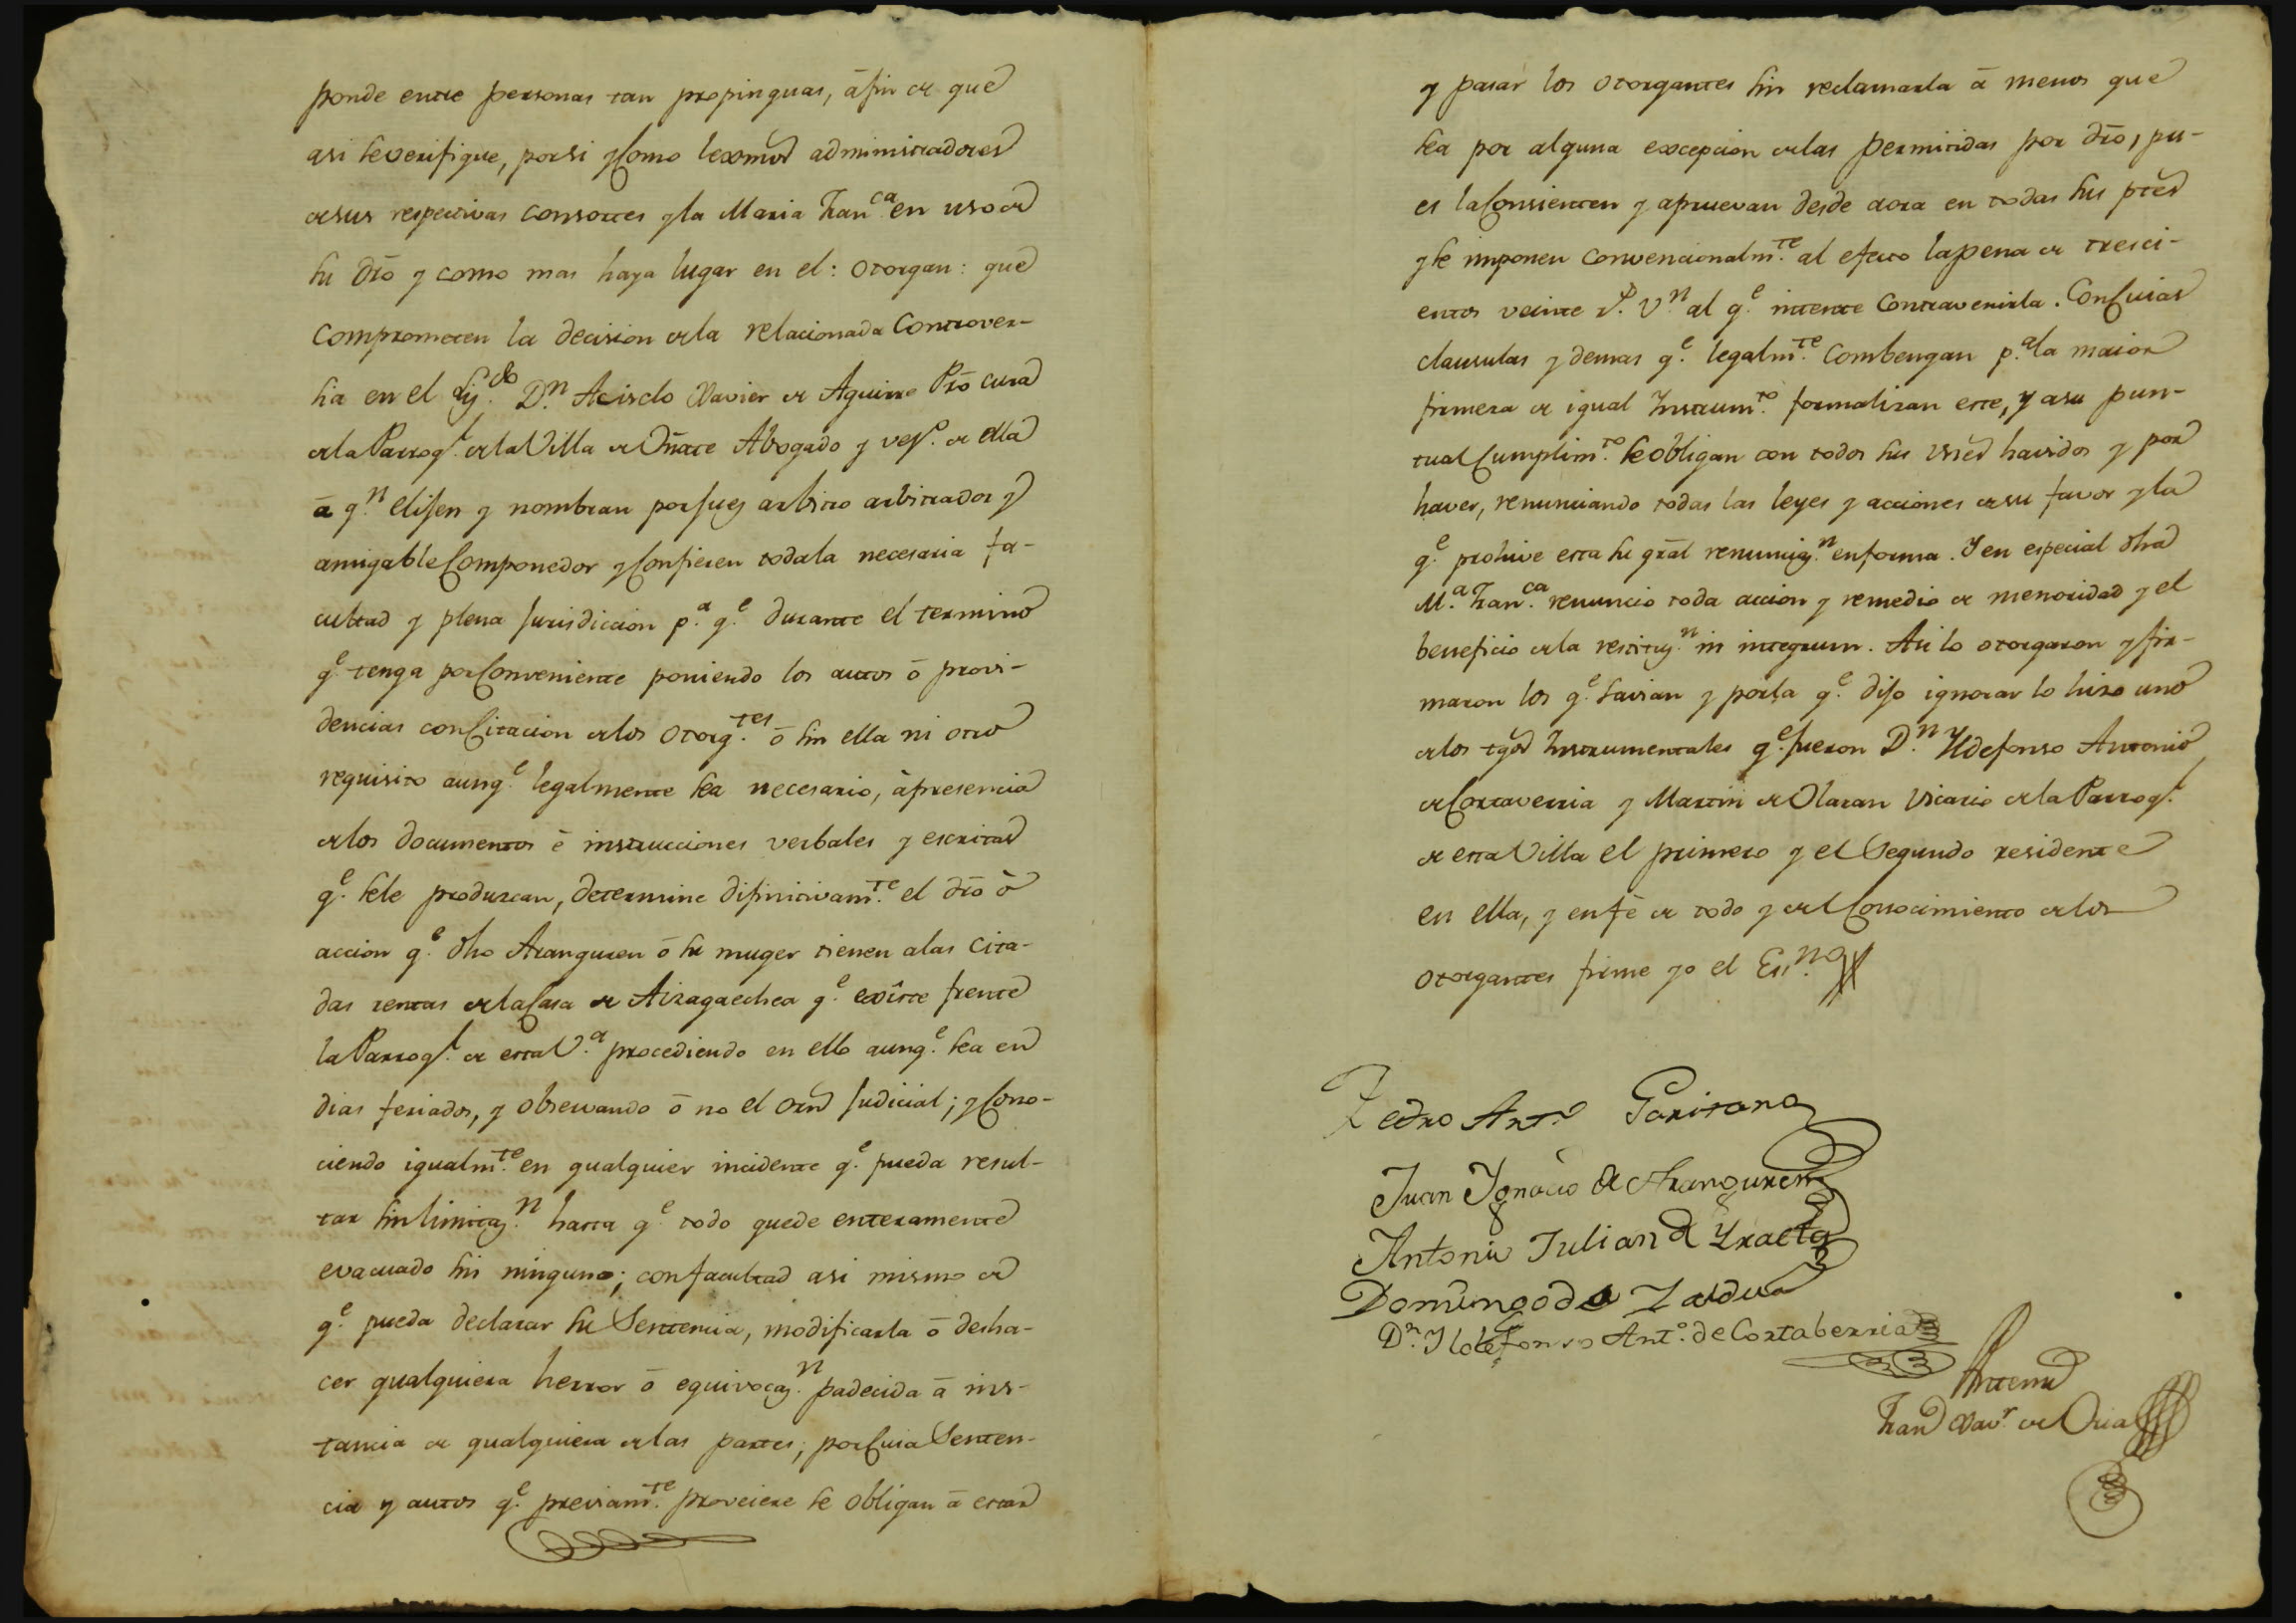 ponde entre personas tan propinguas, á fin de que
asi se verifique, por si y como lexmos administradores
de sus respectivas consortes y la Maria Fran.ca en uso de
su dro y como mas haya lugar en el: otorgan: que
comprometen la decision de la relacionada controver-
sia en el Liz.do D.n Acisclo Xavier de Aguirre Pro cura
de la Parroq.l de la Villa de Oñate Abogado y vez.o de ella
á q.n elijen y nombran por juez arbitro arbitrador y
amigable Componedor y Confieren toda la necesaria fa-
cultad y plena jurisdiccion p.a q.e durante el termino
q.e tenga por Conveniente poniendo los autos ó provi-
dencias con Citacion de los otorg.tes ó sin ella ni otro
requisito aunq.e legalmente sea necesario, á presencia
de los documentos é instrucciones verbales y escritas
q.e se le produzcan, determine difinitivam.te el dro ó
accion q.e dho Aranguren ó su muger tienen a las cita-
das rentas de la Casa de Aizagaechea q.e existe frente
la Parroq.l de esta V.a procediendo en ello aunq.e sea en
dias feriados, y observando ó no el orn judicial; y Cono-
ciendo igualm.te en qualquier incidente q.e pueda resul-
tar sin limitaz.n hasta q.e todo quede enteramente
evacuado sin ninguno; con facultad asi mismo de
q.e pueda declarar su Sentencia, modificarla ó desha-
cer qualquiera herror ó equivocaz.n padecida á ins-
tancia de qualquiera de las partes; por Cuia Senten-
cia y autos q.e previam.te proveiere se obligan á estar
y pasar los otorgantes sin reclamarla á menos que
sea por alguna excepcion de las permitidas por dro, pu-
es la Consienten y apruevan desde aora en todas sus ptes
y se imponen convencionalm.te al efecto la pena de tresci-
entos veinte r.s V.n al q.e intente Contravenirla. Con Cuias
clausulas y demas q.e legalm.te combengan p.a la maior
firmeza de igual Instrum.to formalizan este, y a su pun-
tual Cumplim.to se obligan con todos sus vnes havidos y por
haver, renunciando todas las leyes y acciones de su favor y la
q.e prohive esta su gral renunciaz.n en forma. Y en especial dha
M.a Fran.ca renuncio toda accion y remedio de menoridad y el
beneficio de la restituz.n in integrum. Asi lo otorgaron y fir-
maron los q.e savian y por la q.e dijo ignorar lo hizo uno
de los tgos Instrumentales q.e fueron D.n Yldefonso Antonio
de Cortaverria y Martin de Olaran Vicario de la Parroq.l
de esta Villa el primero y el Segundo residente
en ella, y en fé de todo y del Conocimiento de los
otorgantes firme yo el Ess.no
Pedro Ant.o Garitano
Juan Ygnacio de Aranguren
Antonio Julian de Yraeta
Domingo de Zaldua
D.n Yldefonso Ant.o de Cortaberria
Antemi
Fran Xav.r de Oria